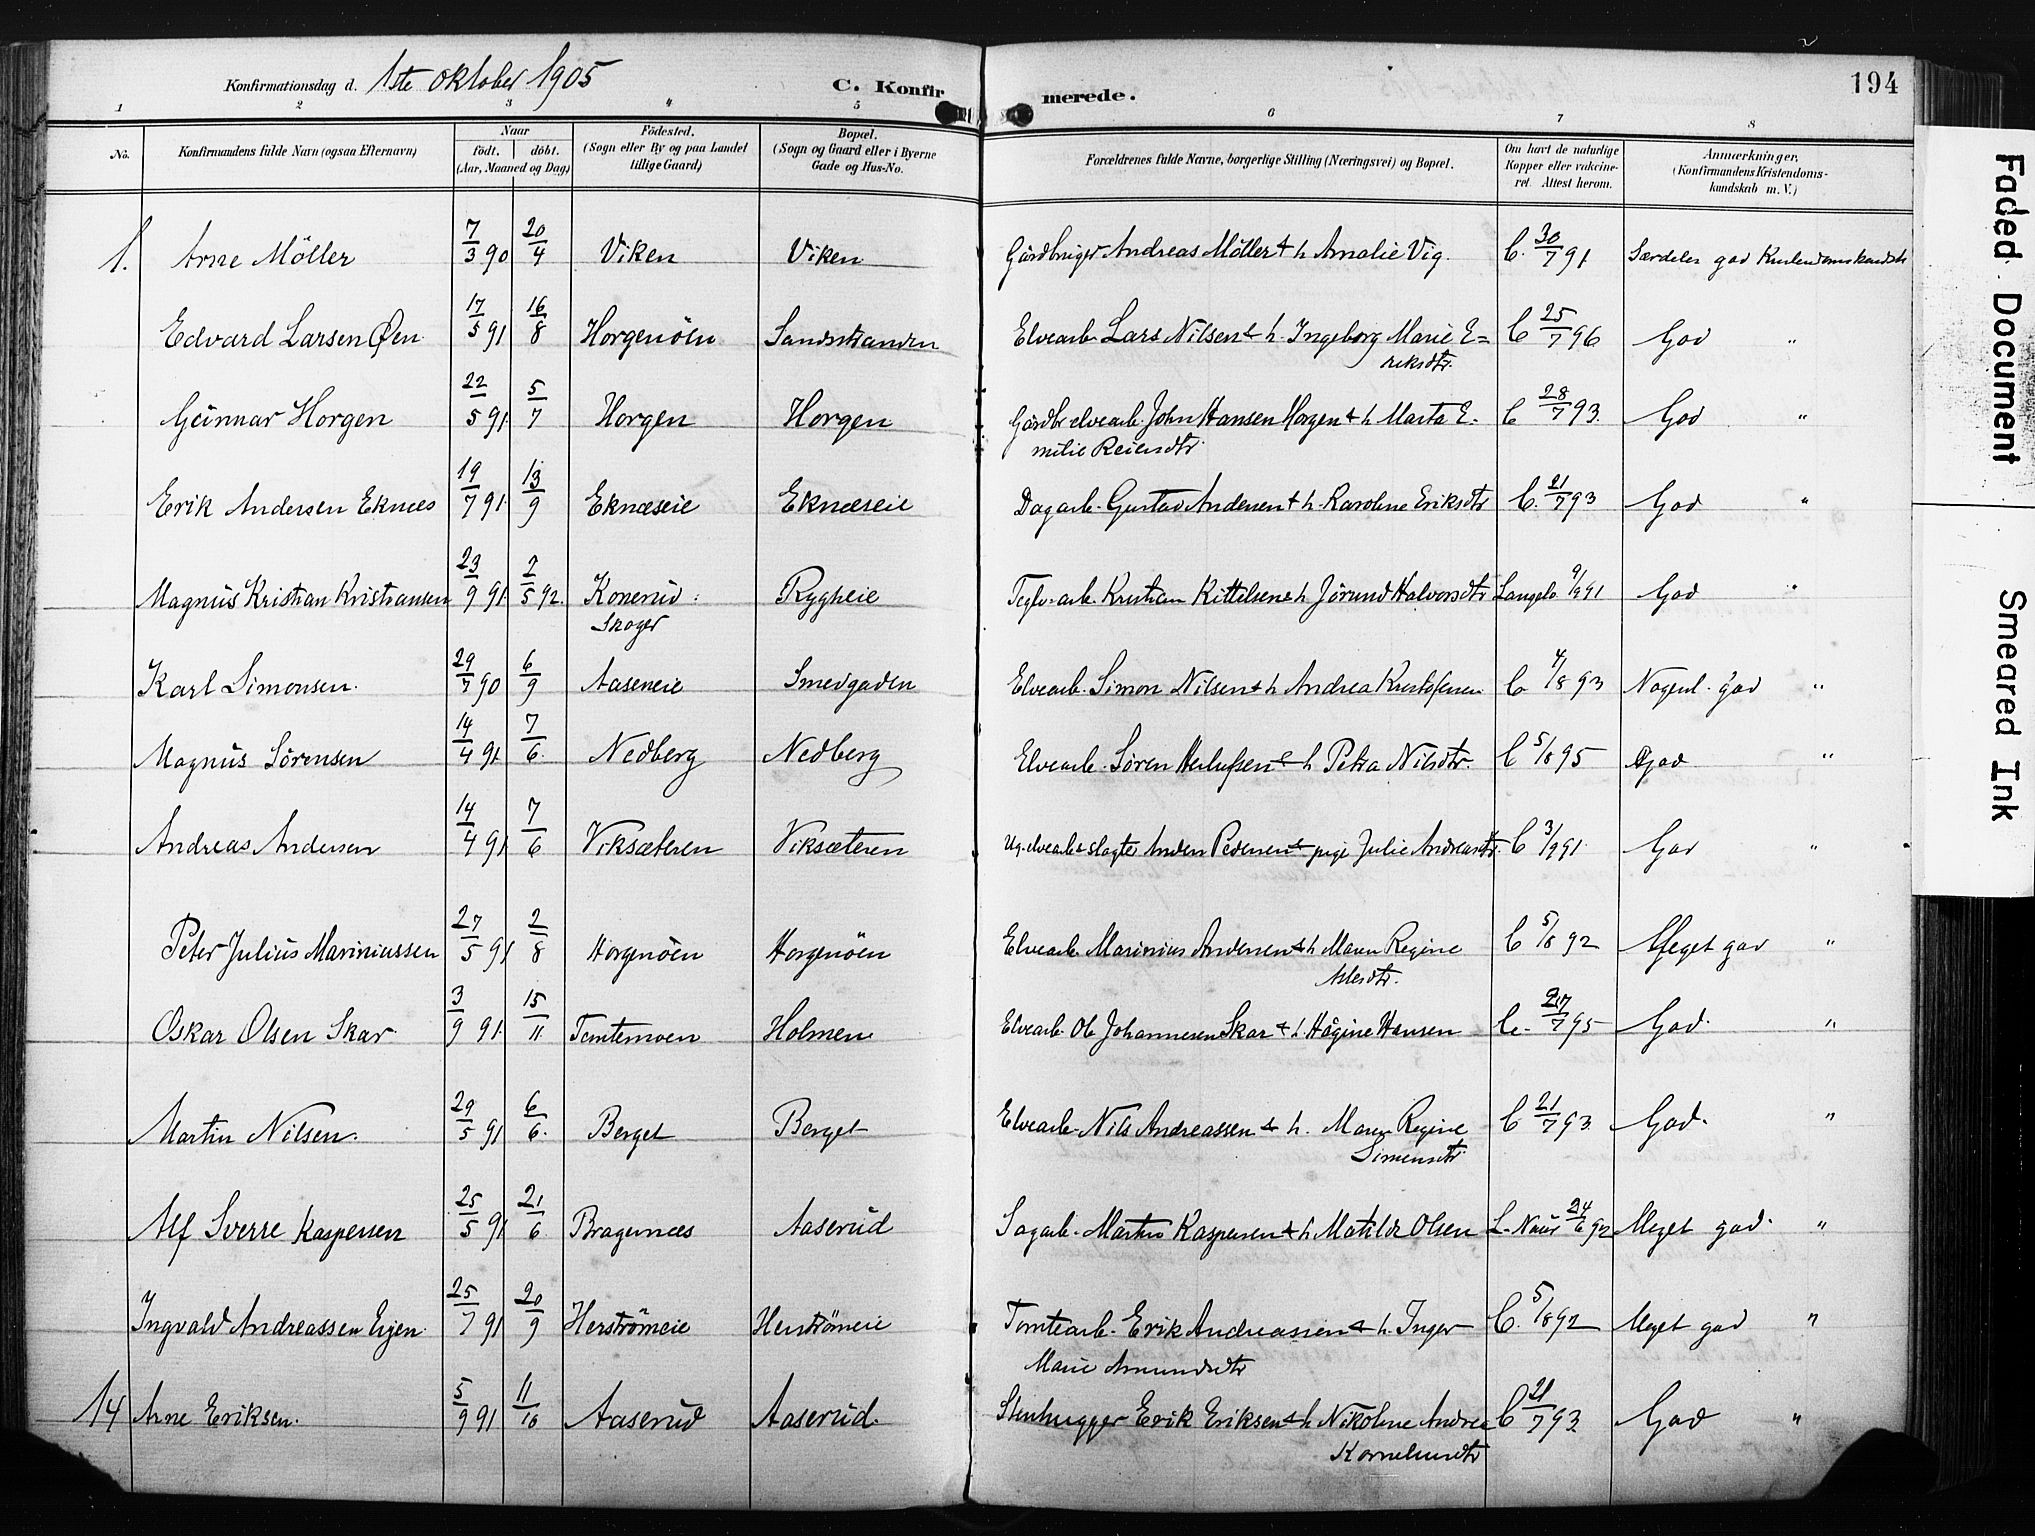 Konfirmationsdag d. 1ste oktober 1905 C. Konfirmerede. 194
1 2 3 " 5 6 7 8
No. Konfirmandens fulde Navn (ogsaa Efternavn) Naar født, døbt. (Aar, Maaned og Dag) Fødested. (Sogn eller By og paa Landet tillige Gaard) Bopæl. (Sogn og Gaard eller i Byerne Gade og Hus-No. Forældrenes fulde Navne, borgerlige Stilling (Næringsvei) og Bopæl. Om havt de naturlige Kopper eller vakcineret. Attest herom. Anmærkninger, (Konfirmandens Kristendomskundskab m. V.)
1. Arne Möller 7/3 90 20/4 Viken Viken Gårdbruger Andreas Möller & h Amalie Vig. C. 30/7 91 Særdeles god Kristendomskundsk
Edvard Larsen Øen 17/5 91 16/8 Horgenöen Sandstranden Elvearb. Lars Nilsen & h. Ingeborg Marie E=
riksdtr. C 25/7 96 God "
Gunnar Horgen 22/5 91 5/7 Horgen Horgen Gårdbr elvearb. John Hansen Horgen & h Marta E-
milie Reiersdtr C 28/7 93. God "
Erik Andersen Eknæs 19/7 91 13/9 Eknæseie Eknæseie Dagarb. Gustav Andersen & h. Karoline Eriksdtr C. 21/7 93 God "
Magnus Kristian Kristiansen 23/9 91 2/5 92. Konerud
Skoger Rygheie Teglv.arb. Kristian Kittelsen & h Jörund Halvorsdtr Langelo 9/9 91 God "
Karl Simonsen. 29/7 90 6/9 Aaseneie Smedgaden Elvearb. Simon Nilsen & h Andrea Kristofersen C 4/8 93 Nogenl. god "
Magnus Sörensen 14/4 91 7/6 Nedberg Nedberg Elvearb. Sören Herlufsen & h Petra Nilsdtr. C 5/8 95 God "
Andreas Andersen 14/4 91 7/6 Viksæteren Viksæteren Ug. elvearb & slagter Anders Pedersen & pige Julie Andreasdtr. C 3/9 91 God "
Peter Julius Mariniussen 27/5 91 2/8 Horgenöen Horgenöen Elvearb. Marinius Andersen & h Maren Regine
Atlesdtr. C 5/8 92 Meget god "
Oskar Olsen Skar 3/9 91 15/11 Tomtemoen Holmen Elvearb Ole Johannesen Skar & h. Hågine Hansen C. 27/7 95 God. "
Martin Nilsen. 29/5 91 6/6. Berget Berget Elvearb. Nils Andreassen & h. Maren Regine
Simensdtr C 21/7 93 God. "
Alf Sverre Kaspersen 25/5 91 21/6 Bragernæs Aaserud Sagarb. Martin Kaspersen & h Matilde Olsen L. Naur 24/6 92 Meget god. "
Ingvald Andreassen Eijen 25/7 91 20/9 Herströmeie Herströmeie Tomtearb. Erik Andreassen & h. Inger
Marie Amundsdtr C. 5/8 92 Meget god "
14 Arne Eriksen. 5/9 91 11/10 Aaserud Aaserud. Stenhugger Erik Eriksen & h Nikoline Andrea
Korneliusdtr C 21/7 93 God "
Faded Document
Smeared Ink